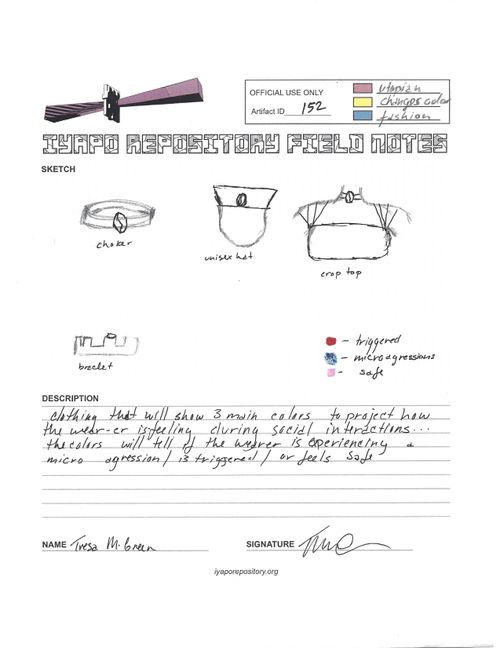 OFFICIAL USE ONLY
Artifact ID 152
utopian
changes color
fashion
IYAPO REPOSITORY FIELD NOTES
SKETCH
choker
unisex hat
crop top
braclet
- triggered
- microagressions
- safe
DESCRIPTION
clothing that will show 3 main colors to project how
the wear-er is feeling during social interactions...
the colors will tell if the wearer is experiencing a
micro agression / is triggered / or feels safe
NAME Tresa M. Green
SIGNATURE
iyaporepository.org